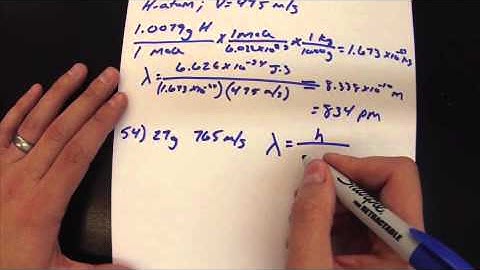 H-atom; V = 475 m/s
1.0079g H / 1 mole × 1 mole / 6.022×10²³ × 1 kg / 1000g = 1.673×10⁻²⁷ kg
λ = 6.626×10⁻³⁴ J·s / (1.673×10⁻²⁷)(475 m/s) = 8.338×10⁻¹⁰ m
= 834 pm
54) 27g 765 m/s λ = h
Sharpie
RETRACTABLE